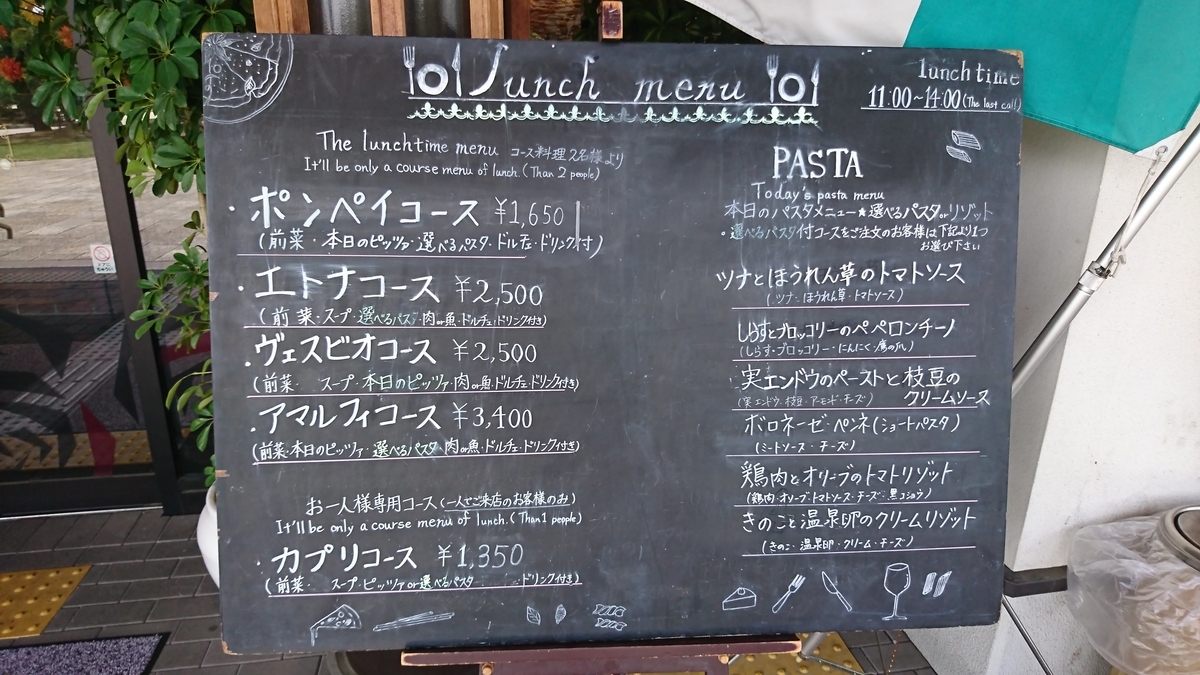 Lunch menu
lunch time
11:00~14:00 (The last call)
The lunchtime menu コース料理 2名様より
It'll be only a course menu of lunch. (Than 2 people)
・ポンペイコース ¥1,650
(前菜・本日のピッツァ・選べるパスタ・ドルチェ・ドリンク付)
・エトナコース ¥2,500
(前菜・スープ・選べるパスタ・肉or魚・ドルチェ・ドリンク付き)
・ヴェスビオコース ¥2,500
(前菜・スープ・本日のピッツァ・肉or魚・ドルチェ・ドリンク付き)
・アマルフィコース ¥3,400
(前菜・本日のピッツァ・選べるパスタ・肉or魚・ドルチェ・ドリンク付き)
お一人様専用コース(一人でご来店のお客様のみ)
It'll be only a course menu of lunch. (Than 1 people)
・カプリコース ¥1,350
(前菜・スープ・ピッツァor選べるパスタ・ドリンク付き)
PASTA
Today's pasta menu
本日のパスタメニュー★選べるパスタorリゾット
・選べるパスタ付コースをご注文のお客様は下記より1つ
お選び下さい
ツナとほうれん草のトマトソース
(ツナ・ほうれん草・トマトソース)
しらすとブロッコリーのペペロンチーノ
(しらす・ブロッコリー・にんにく・鷹の爪)
実エンドウのペーストと枝豆の
クリームソース
(実エンドウ・枝豆・アーモンド・チーズ)
ボロネーゼ・ペンネ(ショートパスタ)
(ミートソース・チーズ)
鶏肉とオリーブのトマトリゾット
(鶏肉・オリーブ・トマトソース・チーズ・黒コショウ)
きのこと温泉卵のクリームリゾット
(きのこ・温泉卵・クリーム・チーズ)